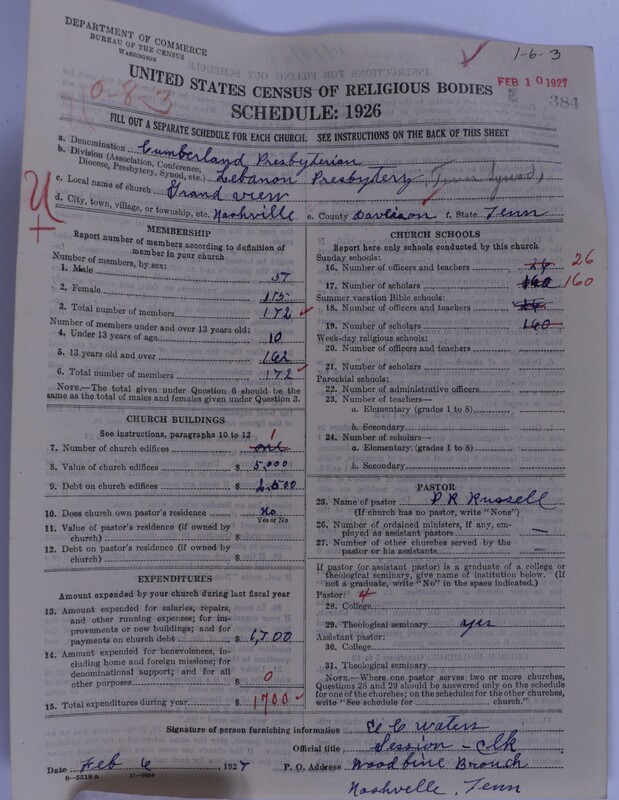 DEPARTMENT OF COMMERCE
BUREAU OF THE CENSUS
WASHINGTON
1-6-3
0-8-3
UNITED STATES CENSUS OF RELIGIOUS BODIES
FEB 10 1927
384
SCHEDULE: 1926
FILL OUT A SEPARATE SCHEDULE FOR EACH CHURCH. SEE INSTRUCTIONS ON THE BACK OF THIS SHEET
a. Denomination Cumberland Presbyterian
b. Division (Association, Conference, Diocese, Presbytery, Synod, etc.) Lebanon Presbytery
c. Local name of church Grand view
d. City, town, village, or township, etc. Nashville e. County Davidson f. State Tenn
MEMBERSHIP
Report number of members according to definition of
member in your church
Number of members, by sex:
1. Male 57
2. Female 115
3. Total number of members 172
Number of members under and over 13 years old:
4. Under 13 years of age 10
5. 13 years old and over 162
6. Total number of members 172
NOTE.—The total given under Question 6 should be
same as the total of males and females given under Question 3.
CHURCH BUILDINGS
See instructions, paragraphs 10 to 12
7. Number of church edifices one 1
8. Value of church edifices $ 5,000
9. Debt on church edifices $ 2,500
10. Does church own pastor's residence No
Yes or No
11. Value of pastor's residence (if owned by
church) $
12. Debt on pastor's residence (if owned by
church) $
EXPENDITURES
Amount expended by your church during last fiscal year
13. Amount expended for salaries, repairs,
and other running expenses; for im-
provements or new buildings; and for
payments on church debt $ 1,700
14. Amount expended for benevolences,
including home and foreign missions; for
denominational support; and for all
other purposes $ 0
15. Total expenditures during year $ 1700
CHURCH SCHOOLS
Report here only schools conducted by this church
Sunday schools:
16. Number of officers and teachers 26 26
17. Number of scholars 160 160
Summer vacation Bible schools:
18. Number of officers and teachers
19. Number of scholars 160
Week-day religious schools:
20. Number of officers and teachers
21. Number of scholars
Parochial schools:
22. Number of administrative officers
23. Number of teachers—
a. Elementary (grades 1 to 8)
b. Secondary
24. Number of scholars—
a. Elementary (grades 1 to 8)
b. Secondary
PASTOR
25. Name of pastor P R Russell
(If church has no pastor, write "None")
26. Number of ordained ministers, if any, em-
ployed as assistant pastors —
27. Number of other churches served by the
pastor or his assistants —
If pastor (or assistant pastor) is a graduate of a college or
theological seminary, give name of institution below. (If
not a graduate, write "No" in the space indicated.)
Pastor: 4
28. College
29. Theological seminary yes
Assistant pastor:
30. College
31. Theological seminary
NOTE.—Where one pastor serves two or more churches,
Questions 28 and 29 should be answered only on the schedule
for one of the churches; on the schedules for the other churches,
write "See schedule for church."
Signature of person furnishing information C C Waters
Official title Session - Clk
Date Feb 6 1927 P. O. Address Woodbine Branch
8-5318a 11-9034
Nashville, Tenn